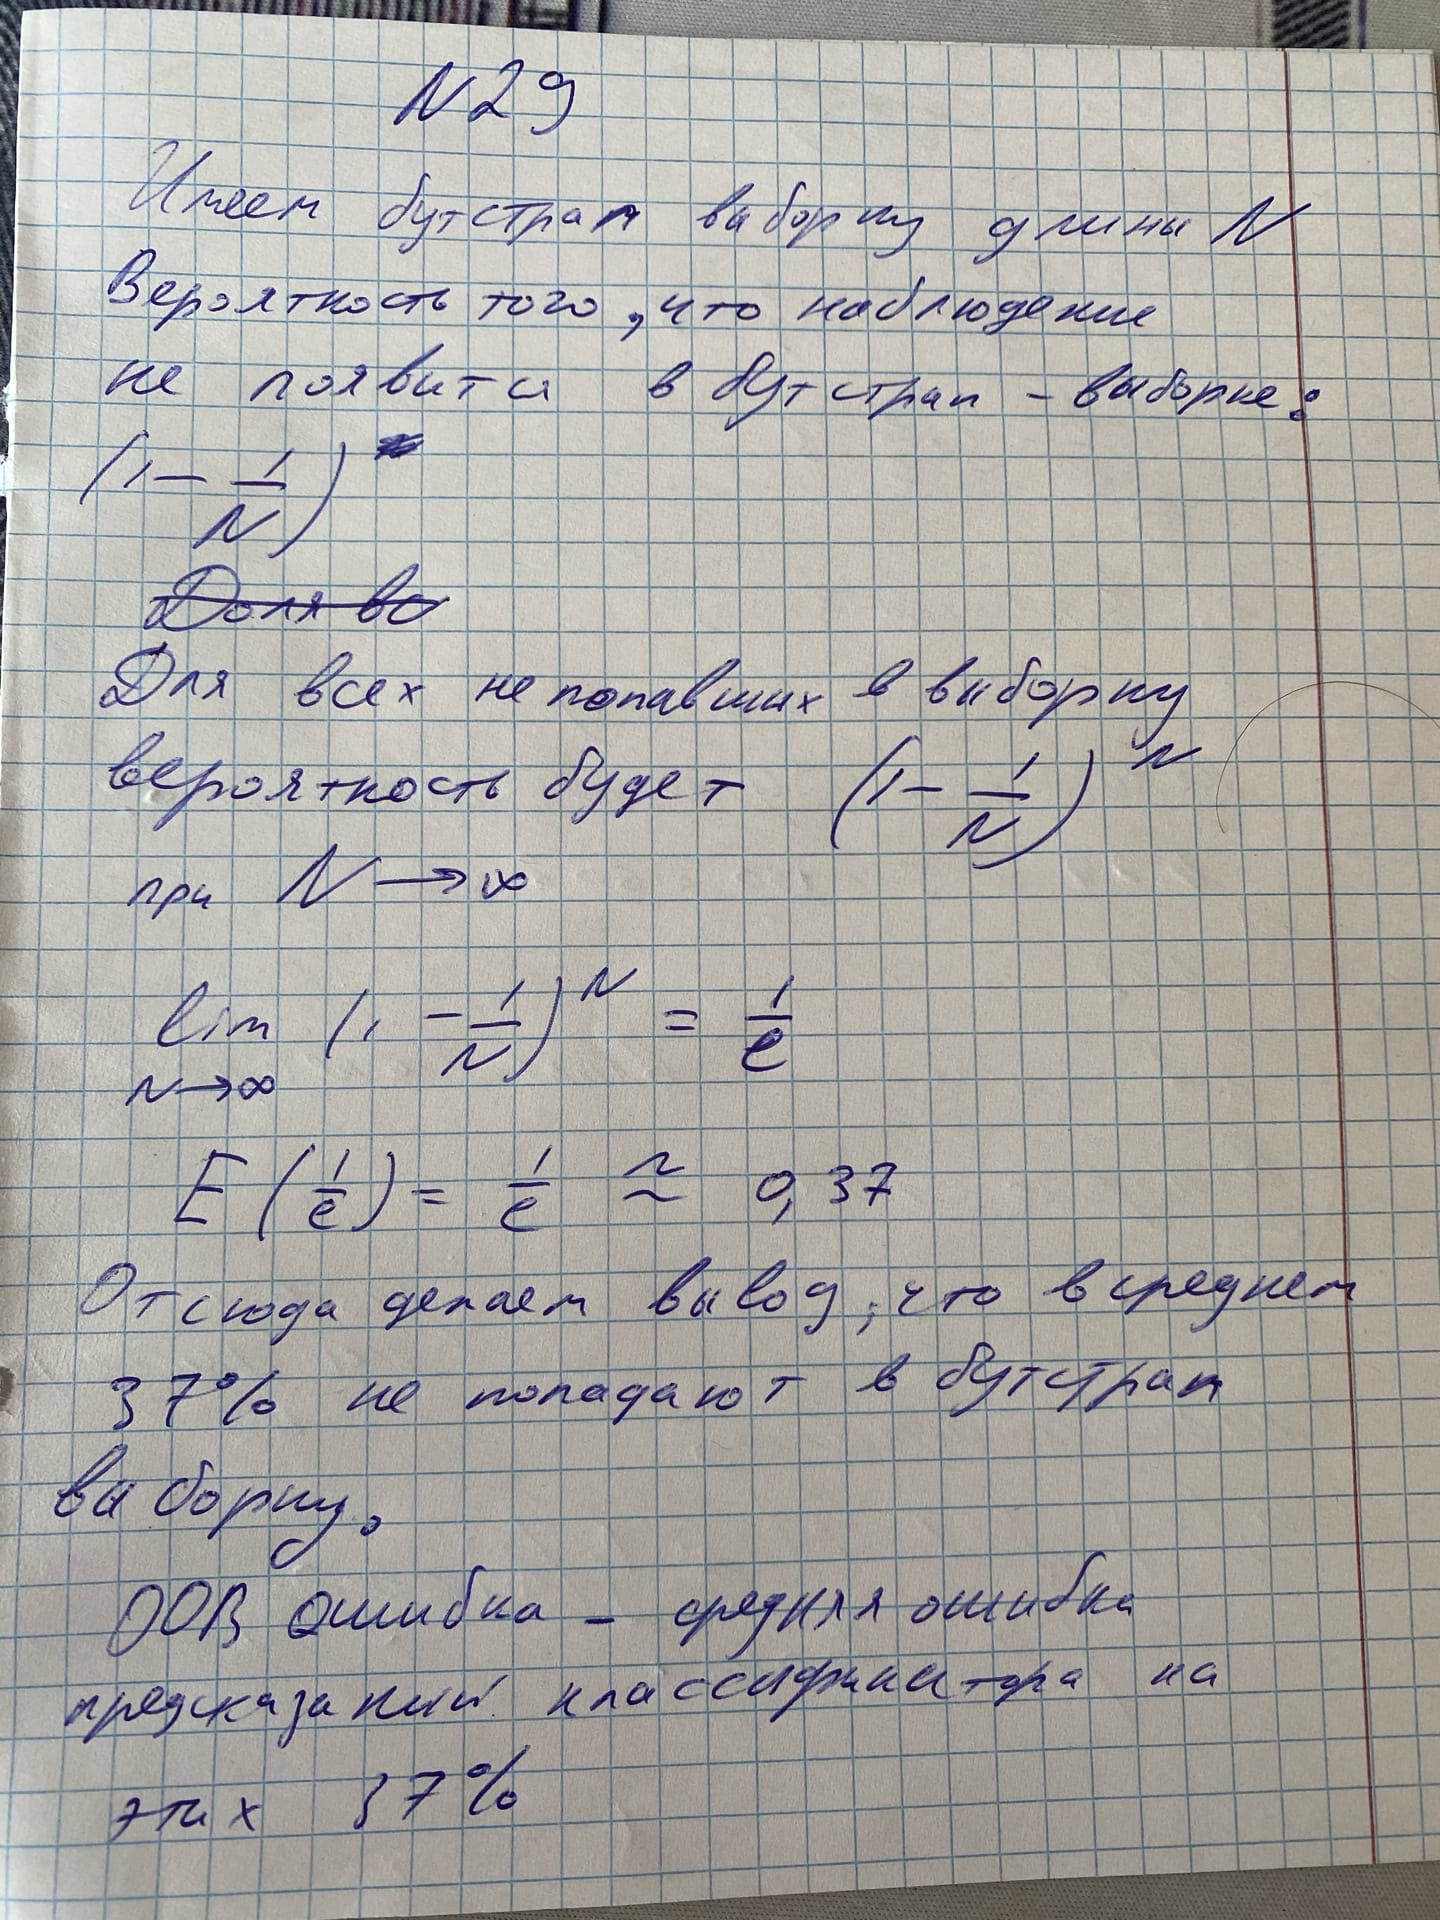 N29
Имеем бутстрап выборку длины N
Вероятность того, что наблюдение
не появится в бутстрап-выборке:
(1 - 1/N)
Доля во
Для всех не попавших в выборку
вероятность будет (1 - 1/N)^N
при N → ∞
lim N→∞ (1 - 1/N)^N = 1/e
E(1/e) = 1/e ≃ 0,37
Отсюда делаем вывод, что в среднем
37% не попадают в бутстрап
выборку.
OOB ошибка - средняя ошибка
предсказаний классификатора на
этих 37%